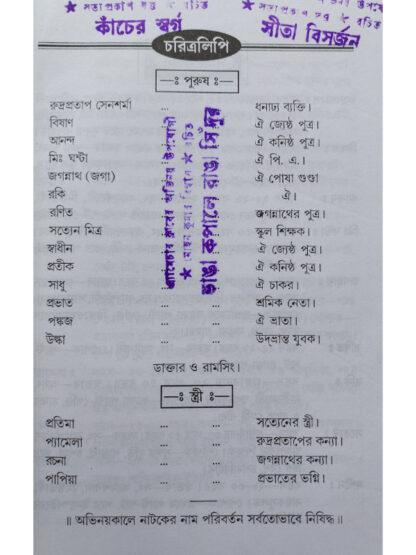 ★ সত্যপ্রকাশ দত্ত ★ রচিত
কাঁচের স্বর্গ
★ সত্যপ্রকাশ দত্ত ★ রচিত
সীতা বিসর্জন
চরিত্রলিপি
—ঃ পুরুষ ঃ—
রুদ্রপ্রতাপ সেনশর্মা ... ধনাঢ্য ব্যক্তি।
বিষাণ ঐ জ্যেষ্ঠ পুত্র।
আনন্দ ঐ কনিষ্ঠ পুত্র।
মিঃ ঘন্টা ঐ পি. এ.।
জগন্নাথ (জগা) ঐ পোষা গুণ্ডা
রকি ঐ।
রণিত জগন্নাথের পুত্র।
সত্যেন মিত্র স্কুল শিক্ষক।
স্বাধীন ঐ জ্যেষ্ঠ পুত্র।
প্রতীক ঐ কনিষ্ঠ পুত্র।
সাধু ঐ চাকর।
প্রভাত ... শ্রমিক নেতা।
পঙ্কজ ... ... ঐ ভ্রাতা।
উল্কা ... ... উদ্‌ভ্রান্ত যুবক।
এ্যামেচার ক্লাবের অভিনয় উপযোগী
★ মোহন কুমার বিশ্বাস ★ রচিত
ভাঙা কপালে রাঙা সিঁদুর
ডাক্তার ও রামসিং।
—ঃ স্ত্রী ঃ—
প্রতিমা ... ... সত্যেনের স্ত্রী।
প্যামেলা ... ... রুদ্রপ্রতাপের কন্যা।
রচনা ... ... জগন্নাথের কন্যা।
পাপিয়া ... ... প্রভাতের ভগ্নি।
॥ অভিনয়কালে নাটকের নাম পরিবর্তন সর্বতোভাবে নিষিদ্ধ ॥